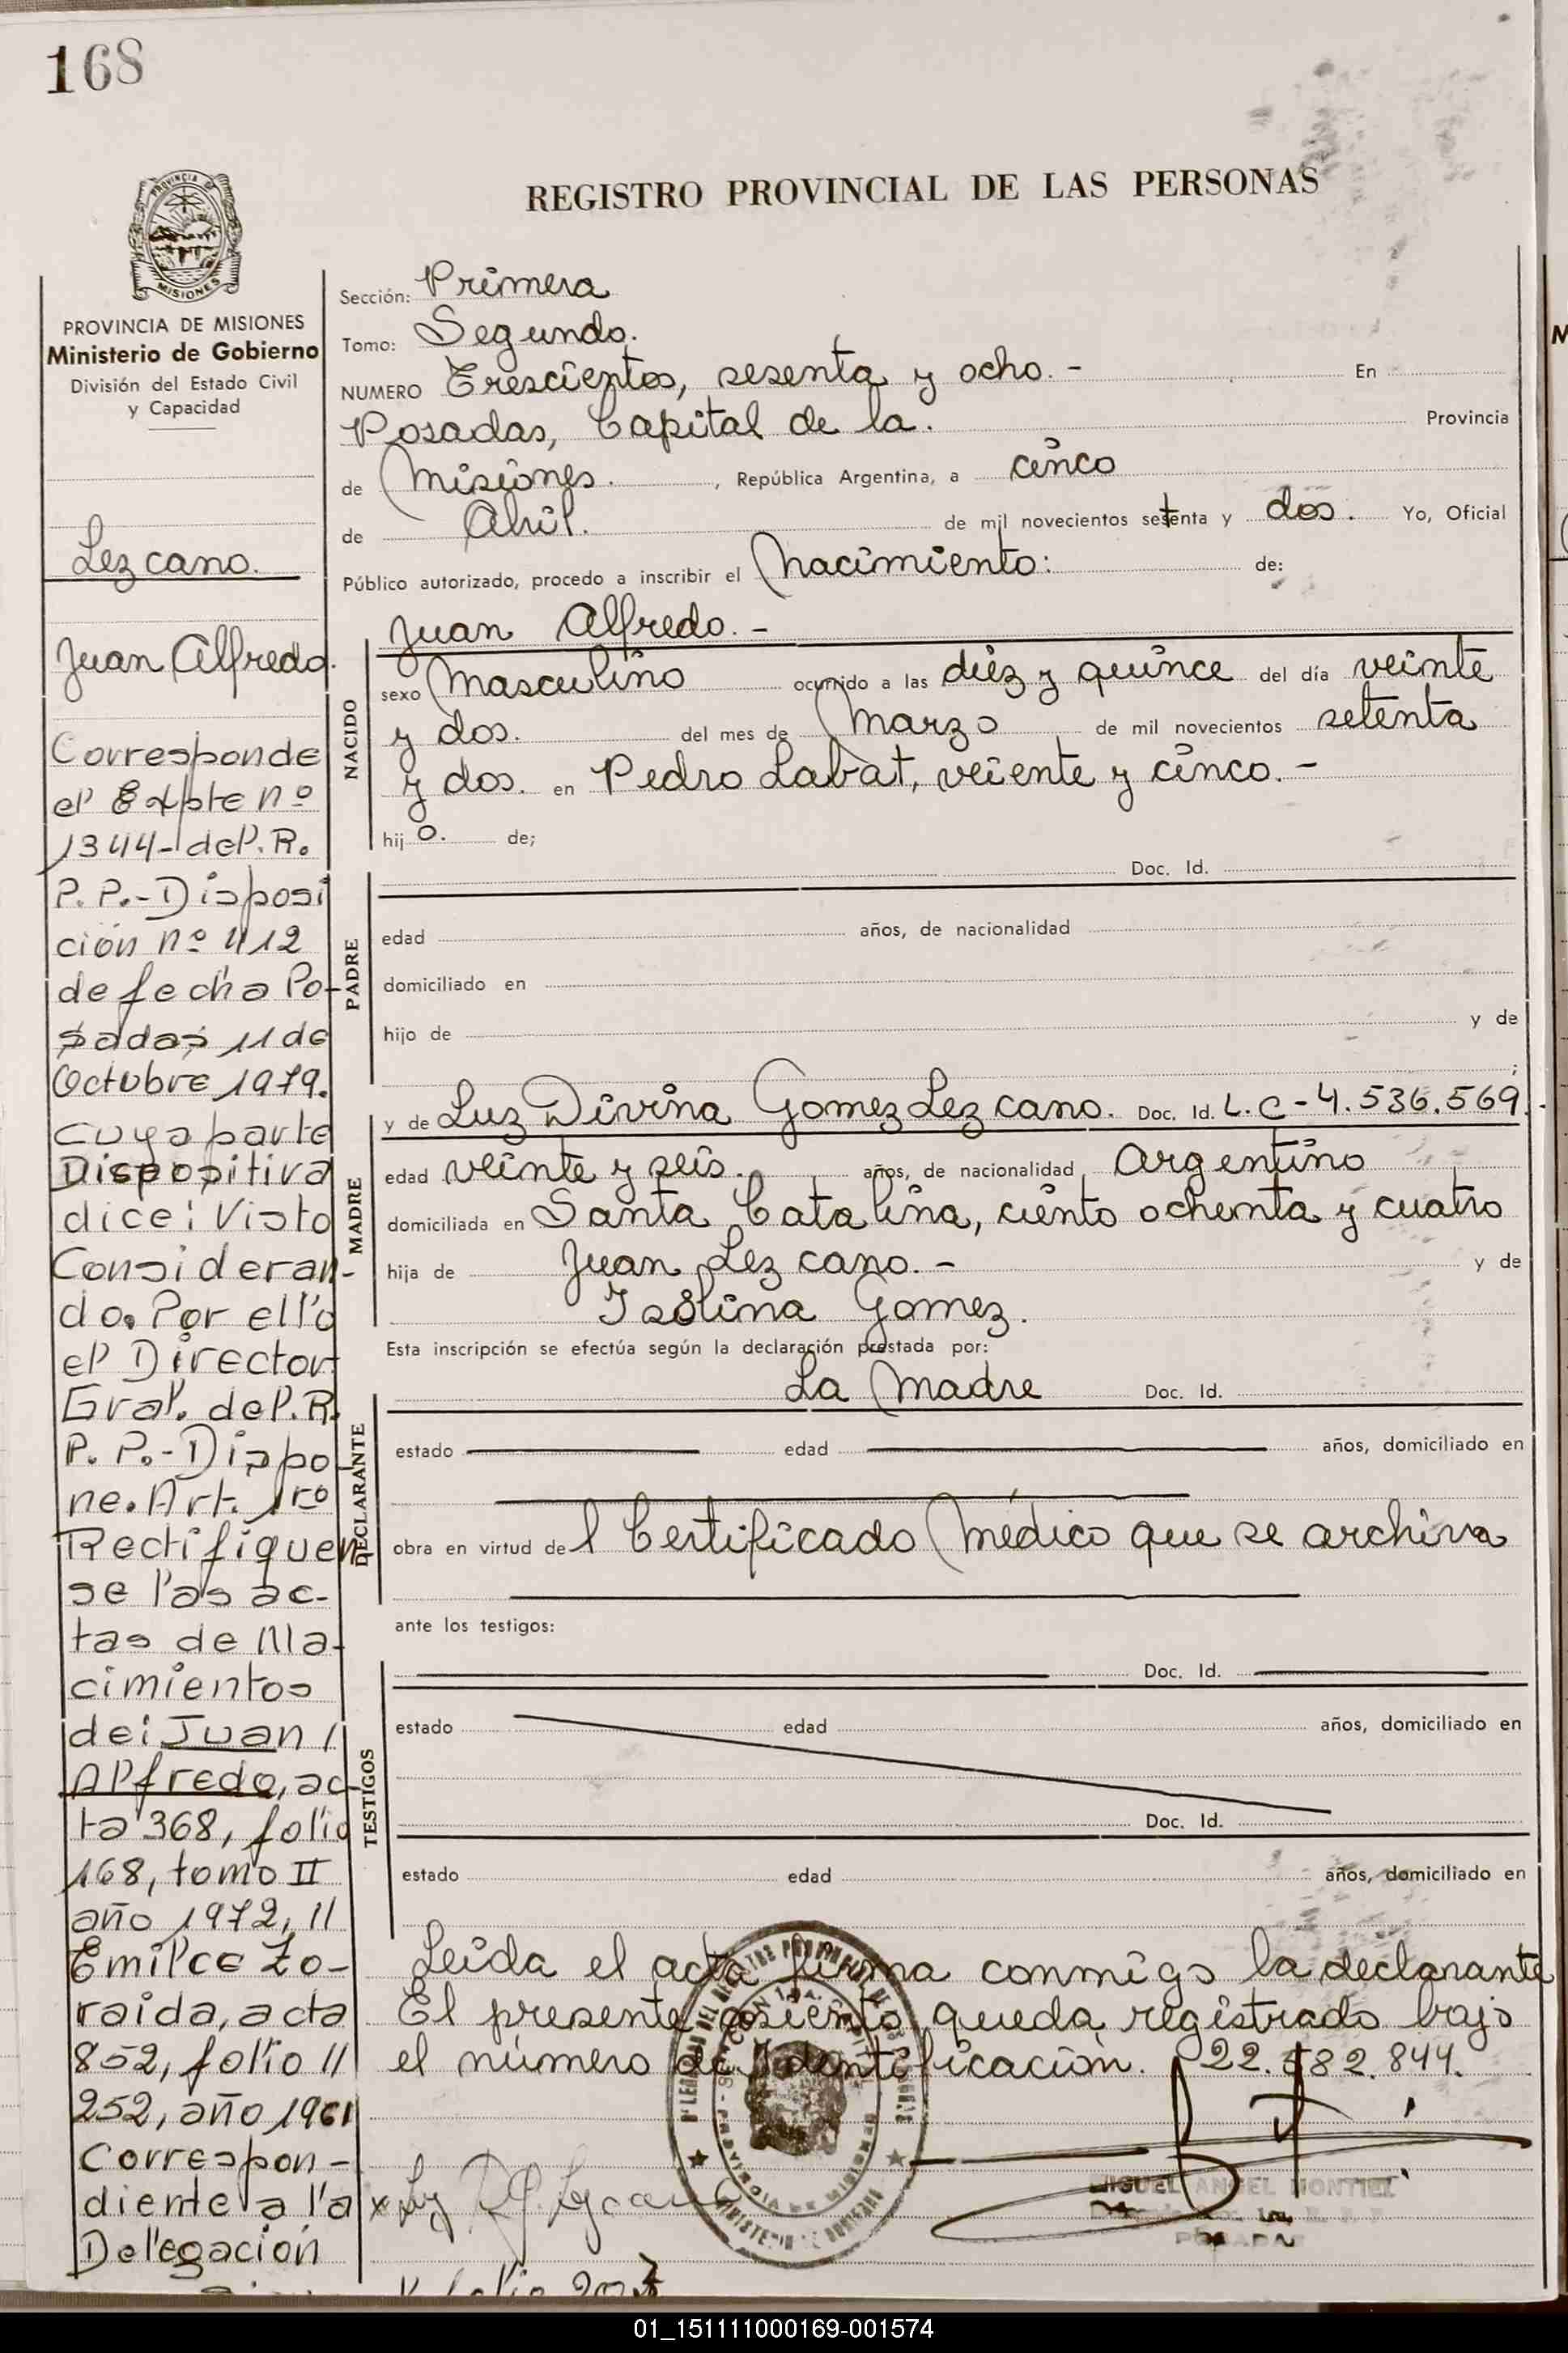 168
REGISTRO PROVINCIAL DE LAS PERSONAS
PROVINCIA DE
MISIONES
PROVINCIA DE MISIONES
Ministerio de Gobierno
División del Estado Civil
y Capacidad
Lezcano.
Juan Alfredo.
Corresponde
el Expte nº
1344-del R.
P. P.-Disposi
ción nº 412
de fecha Po-
sadas 11 de
Octubre 1979.
cuya parte
Dispositiva
dice: Visto
Consideran-
do. Por ello
el Director
Gral. del R.
P. P.-Dispo-
ne. Art. 1ro
Rectifiquen
se las ac-
tas de Na-
cimientos
de: Juan /
Alfredo, ac-
ta 368, folio
168, tomo II
año 1972, //
Emilce Zo-
raida, acta
852, folio //
252, año 1961
Correspon-
diente a la
Delegación
Sección: Primera
Tomo: Segundo.
NUMERO Trescientos, sesenta y ocho. - En
Posadas, Capital de la. Provincia
de Misiones. , República Argentina, a cinco
de Abril. de mil novecientos setenta y dos. Yo, Oficial
Público autorizado, procedo a inscribir el Nacimiento: de:
Juan Alfredo. -
NACIDO
sexo Masculino ocurrido a las diéz y quince del día veinte
y dos. del mes de Marzo de mil novecientos setenta
y dos. en Pedro Labat, veiente y cinco. -
hij o. de;
PADRE
Doc. Id.
edad años, de nacionalidad
domiciliado en
hijo de y de
;
MADRE
y de Luz Divina Gomez Lezcano. Doc. Id. L.C-4.536.569.
edad veinte y seis. años, de nacionalidad Argentino
domiciliada en Santa Catalina, ciento ochenta y cuatro
hija de Juan Lezcano. - y de
Isolina Gomez.
Esta inscripción se efectúa según la declaración prestada por:
DECLARANTE
La Madre Doc. Id.
estado edad años, domiciliado en
obra en virtud de l Certificado Médico que se archiva
ante los testigos:
TESTIGOS
Doc. Id.
estado edad años, domiciliado en
Doc. Id.
estado edad años, domiciliado en
Leida el acta firma conmigo la declarante
El presente asiento queda registrado bajo
el número de Identificación. 22.582.844.
MIGUEL ANGEL MONTIEL
POSADAS
01_151111000169-001574